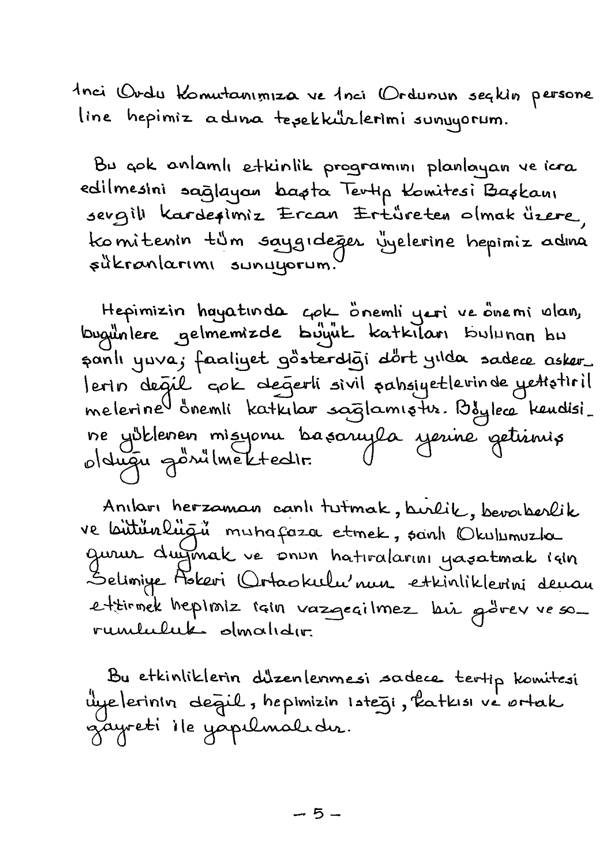 1nci Ordu Komutanımıza ve 1nci Ordunun seçkin persone
line hepimiz adına teşekkürlerimi sunuyorum.
Bu çok anlamlı etkinlik programını planlayan ve icra
edilmesini sağlayan başta Tertip Komitesi Başkanı
sevgili kardeşimiz Ercan Ertüreten olmak üzere,
komitenin tüm saygıdeğer üyelerine hepimiz adına
şükranlarımı sunuyorum.
Hepimizin hayatında çok önemli yeri ve önemi olan,
bugünlere gelmemizde büyük katkıları bulunan bu
şanlı yuva; faaliyet gösterdiği dört yılda sadece asker-
lerin değil çok değerli sivil şahsiyetlerinde yetiştiril
melerine önemli katkılar sağlamıştır. Böylece kendisi_
ne yüklenen misyonu başarıyla yerine getirmiş
olduğu görülmektedir.
Anıları herzaman canlı tutmak, birlik, beraberlik
ve bütünlüğü muhafaza etmek, şanlı Okulumuzla
gurur duymak ve onun hatıralarını yaşatmak için
Selimiye Askeri Ortaokulu'nun etkinliklerini devam
ettirmek hepimiz için vazgeçilmez bir görev ve so_
rumluluk olmalıdır.
Bu etkinliklerin düzenlenmesi sadece tertip komitesi
üyelerinin değil, hepimizin isteği, katkısı ve ortak
gayreti ile yapılmalıdır.
- 5 -